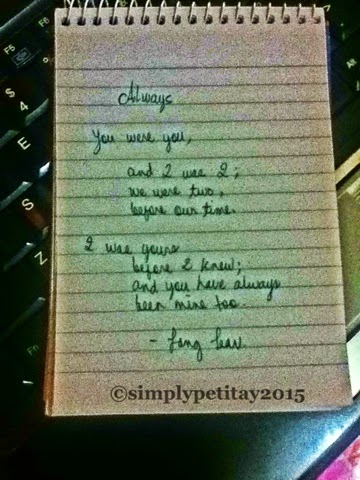 Always
You were you,
and I was I;
we were two,
before our time.
I was yours
before I knew;
and you have always
been mine too.
- Lang Leav
©simplypetitay2015
F5
F6
$
4
E
S
Z
Fn